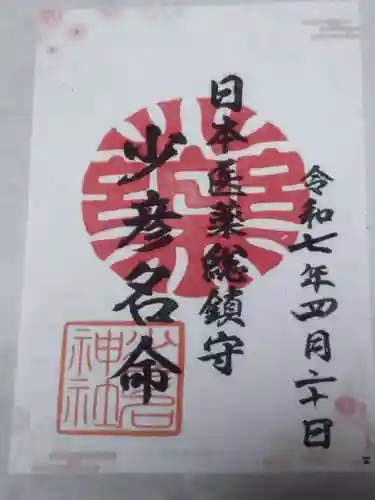 令和七年四月二十日
日本医薬総鎮守
少彦名命
少名
神社